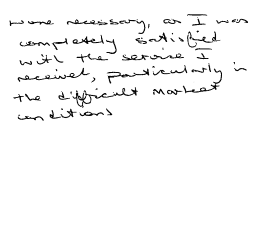 none necessary, as I was
completely satisfied
with the service I
received, particularly in
the difficult market
conditions